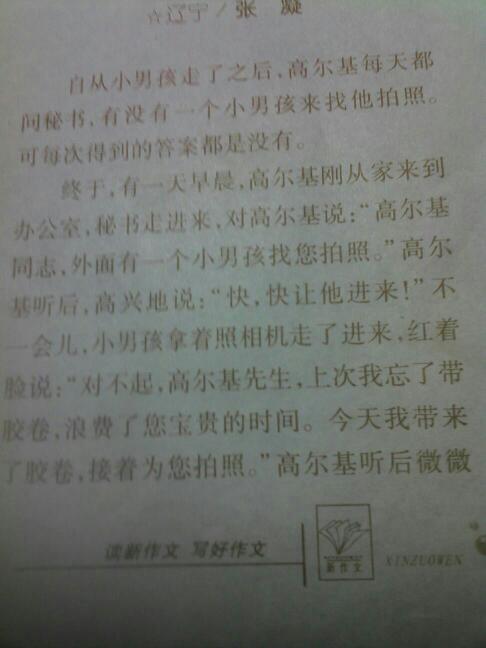 ☆辽宁/张 凝
自从小男孩走了之后,高尔基每天都
问秘书,有没有一个小男孩来找他拍照。
可每次得到的答案都是没有。
终于,有一天早晨,高尔基刚从家来到
办公室,秘书走进来,对高尔基说:“高尔基
同志,外面有一个小男孩找您拍照。”高尔
基听后,高兴地说:“快,快让他进来!”不
一会儿,小男孩拿着照相机走了进来,红着
脸说:“对不起,高尔基先生,上次我忘了带
胶卷,浪费了您宝贵的时间。今天我带来
了胶卷,接着为您拍照。”高尔基听后微微
读新作文 写好作文
新作文
XINZUOWEN